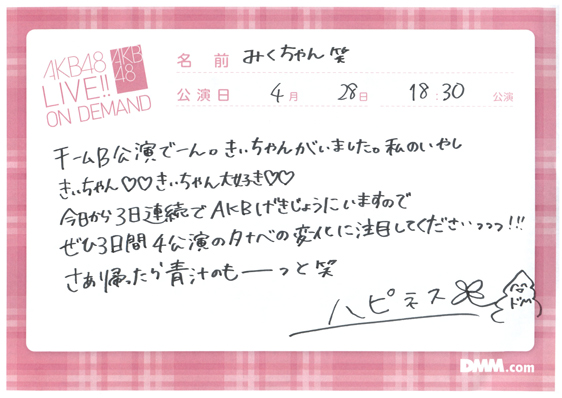 AKB48
LIVE!!
ON DEMAND
AKB
48
名前 みくちゃん笑
公演日 4月 28日 18:30 公演
チームB公演でーん。きぃちゃんがいました。私のいやし
きぃちゃん♡♡きぃちゃん大好き♡♡
今日から3日連続でAKBげきじょうにいますので
ぜひ3日間4公演のタナベの変化に注目してくださいっっっ!!!
さぁ帰ったら青汁のも──っと笑
ハピネス
DMM.com